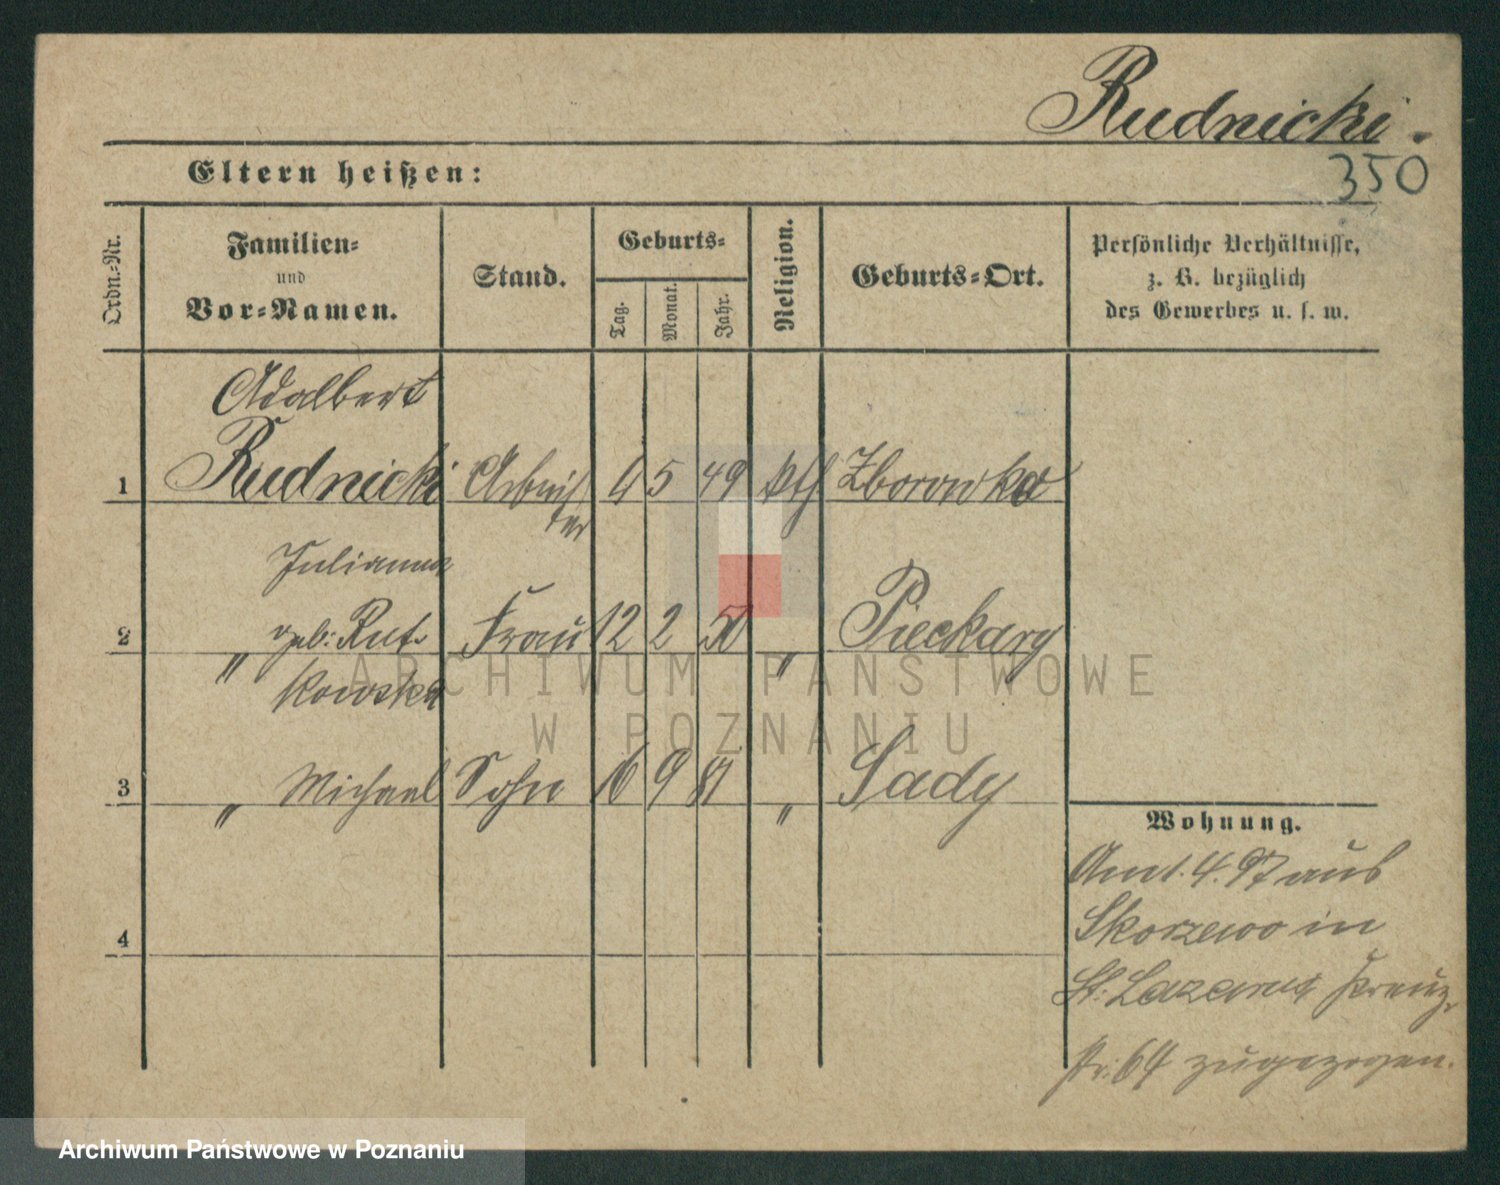 Rudnicki.
350
Eltern heißen:
Ordn.-Nr.
Familien-
und
Vor-Namen.
Stand.
Geburts-
Tag.
Monat.
Jahr.
Religion.
Geburts-Ort.
Persönliche Verhältnisse,
z. B. bezüglich
des Gewerbes u. s. w.
Adalbert
1 Rudnicki Arbei 4 5 49 kth Zborowka
ter
Julianna
2 " geb: Rut- Frau 12 2 50 " Pieckary
kowska
3 " Michael Sohn 16 9 81 " Sady
4
Wohnung.
Am 1. 4. 97 aus
Skorzewo in
St: Lazarus Kreuz-
str: 64 zugezogen.
ARCHIWUM PAŃSTWOWE
W POZNANIU
Archiwum Państwowe w Poznaniu